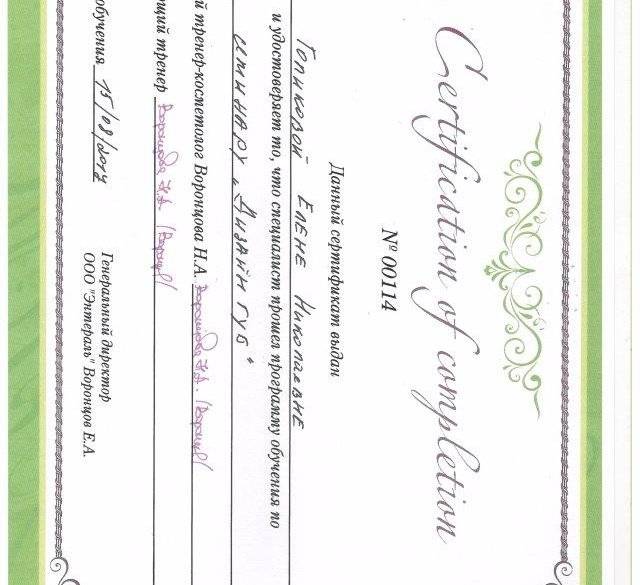 Certification of completion
№ 00114
Данный сертификат выдан
Голиковой Елене Николаевне
и удостоверяет то, что специалист прошел программу обучения по
"Дизайн губ"
й тренер-косметолог Воронцова Н.А. Воронцова Н.А.
щий тренер Воронцова Н.А.
обучения 15/08/2017
Генеральный директор
ООО "Энтераль" Воронцов Е.А.